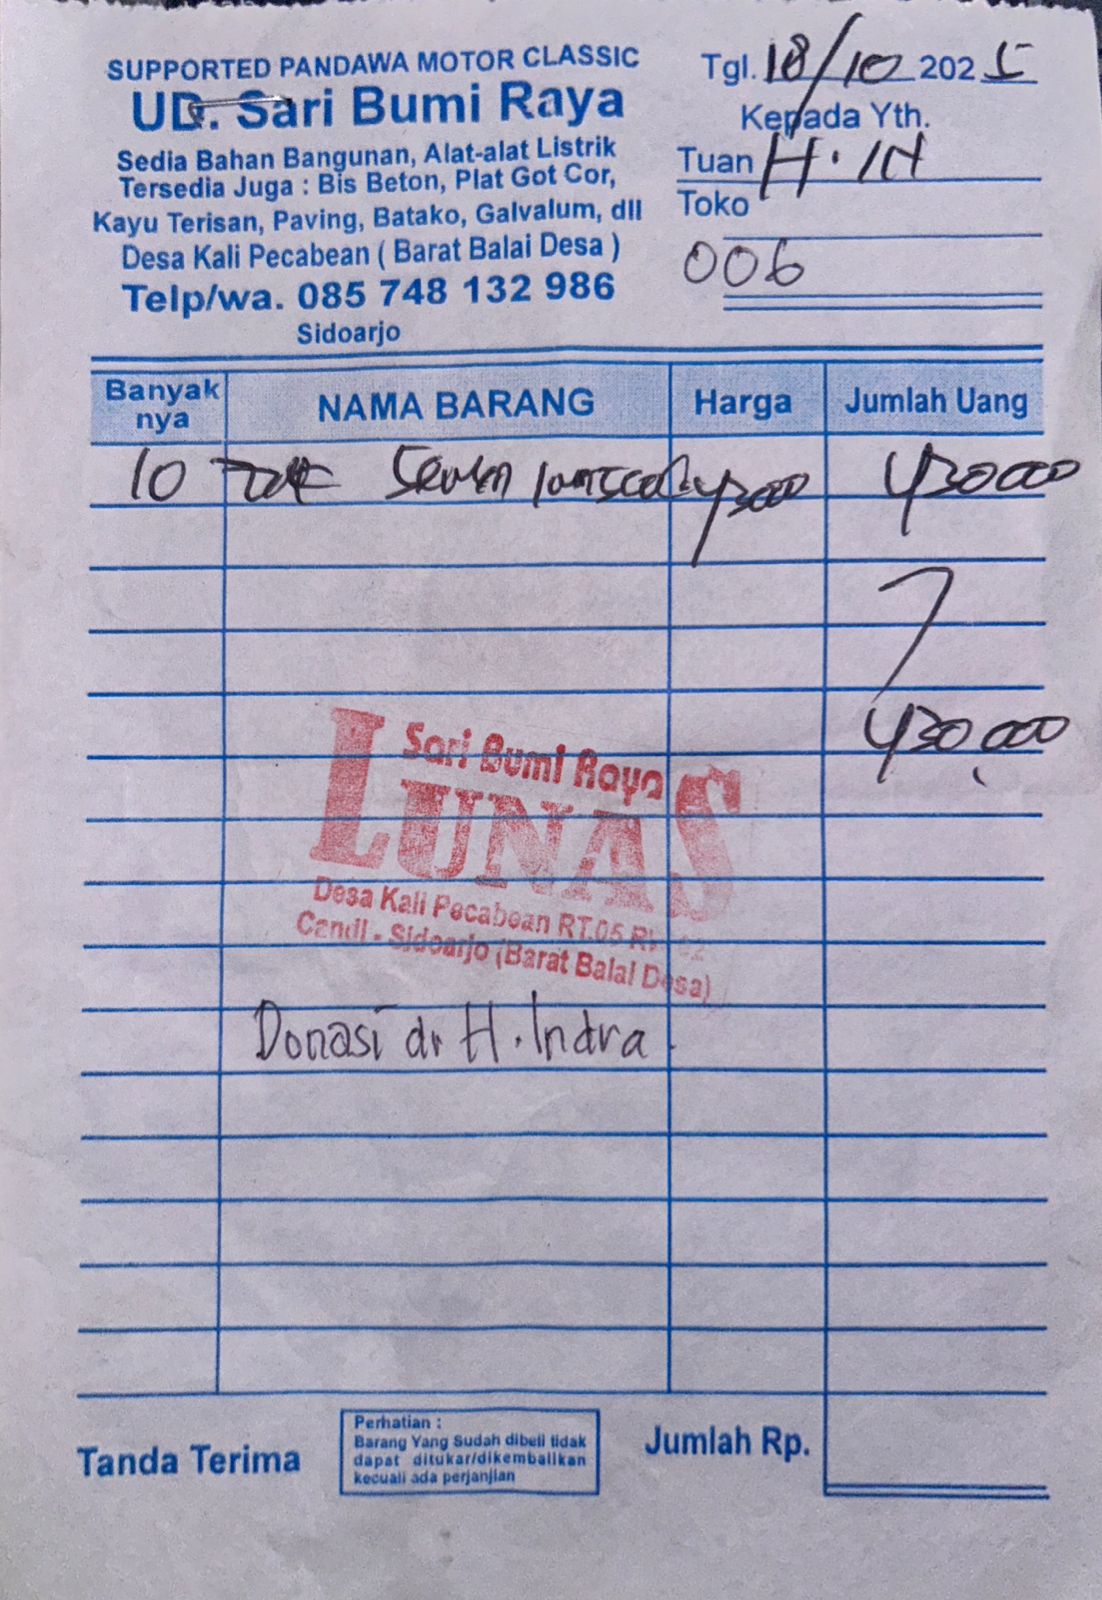 SUPPORTED PANDAWA MOTOR CLASSIC
UD. Sari Bumi Raya
Sedia Bahan Bangunan, Alat-alat Listrik
Tersedia Juga : Bis Beton, Plat Got Cor,
Kayu Terisan, Paving, Batako, Galvalum, dll
Desa Kali Pecabean ( Barat Balai Desa )
Telp/wa. 085 748 132 986
Sidoarjo
Tgl. 18/10 2025
Kepada Yth.
Tuan H. IN
Toko
006
Banyak nya NAMA BARANG Harga Jumlah Uang
10 43000 430000
430,000
Sari Bumi Raya
LUNAS
Desa Kali Pecabean RT.05
Candi - Sidoarjo (Barat Balai Desa)
Donasi dr H. Indra
Tanda Terima
Perhatian :
Barang Yang Sudah dibeli tidak
dapat ditukar/dikembalikan
kecuali ada perjanjian
Jumlah Rp.